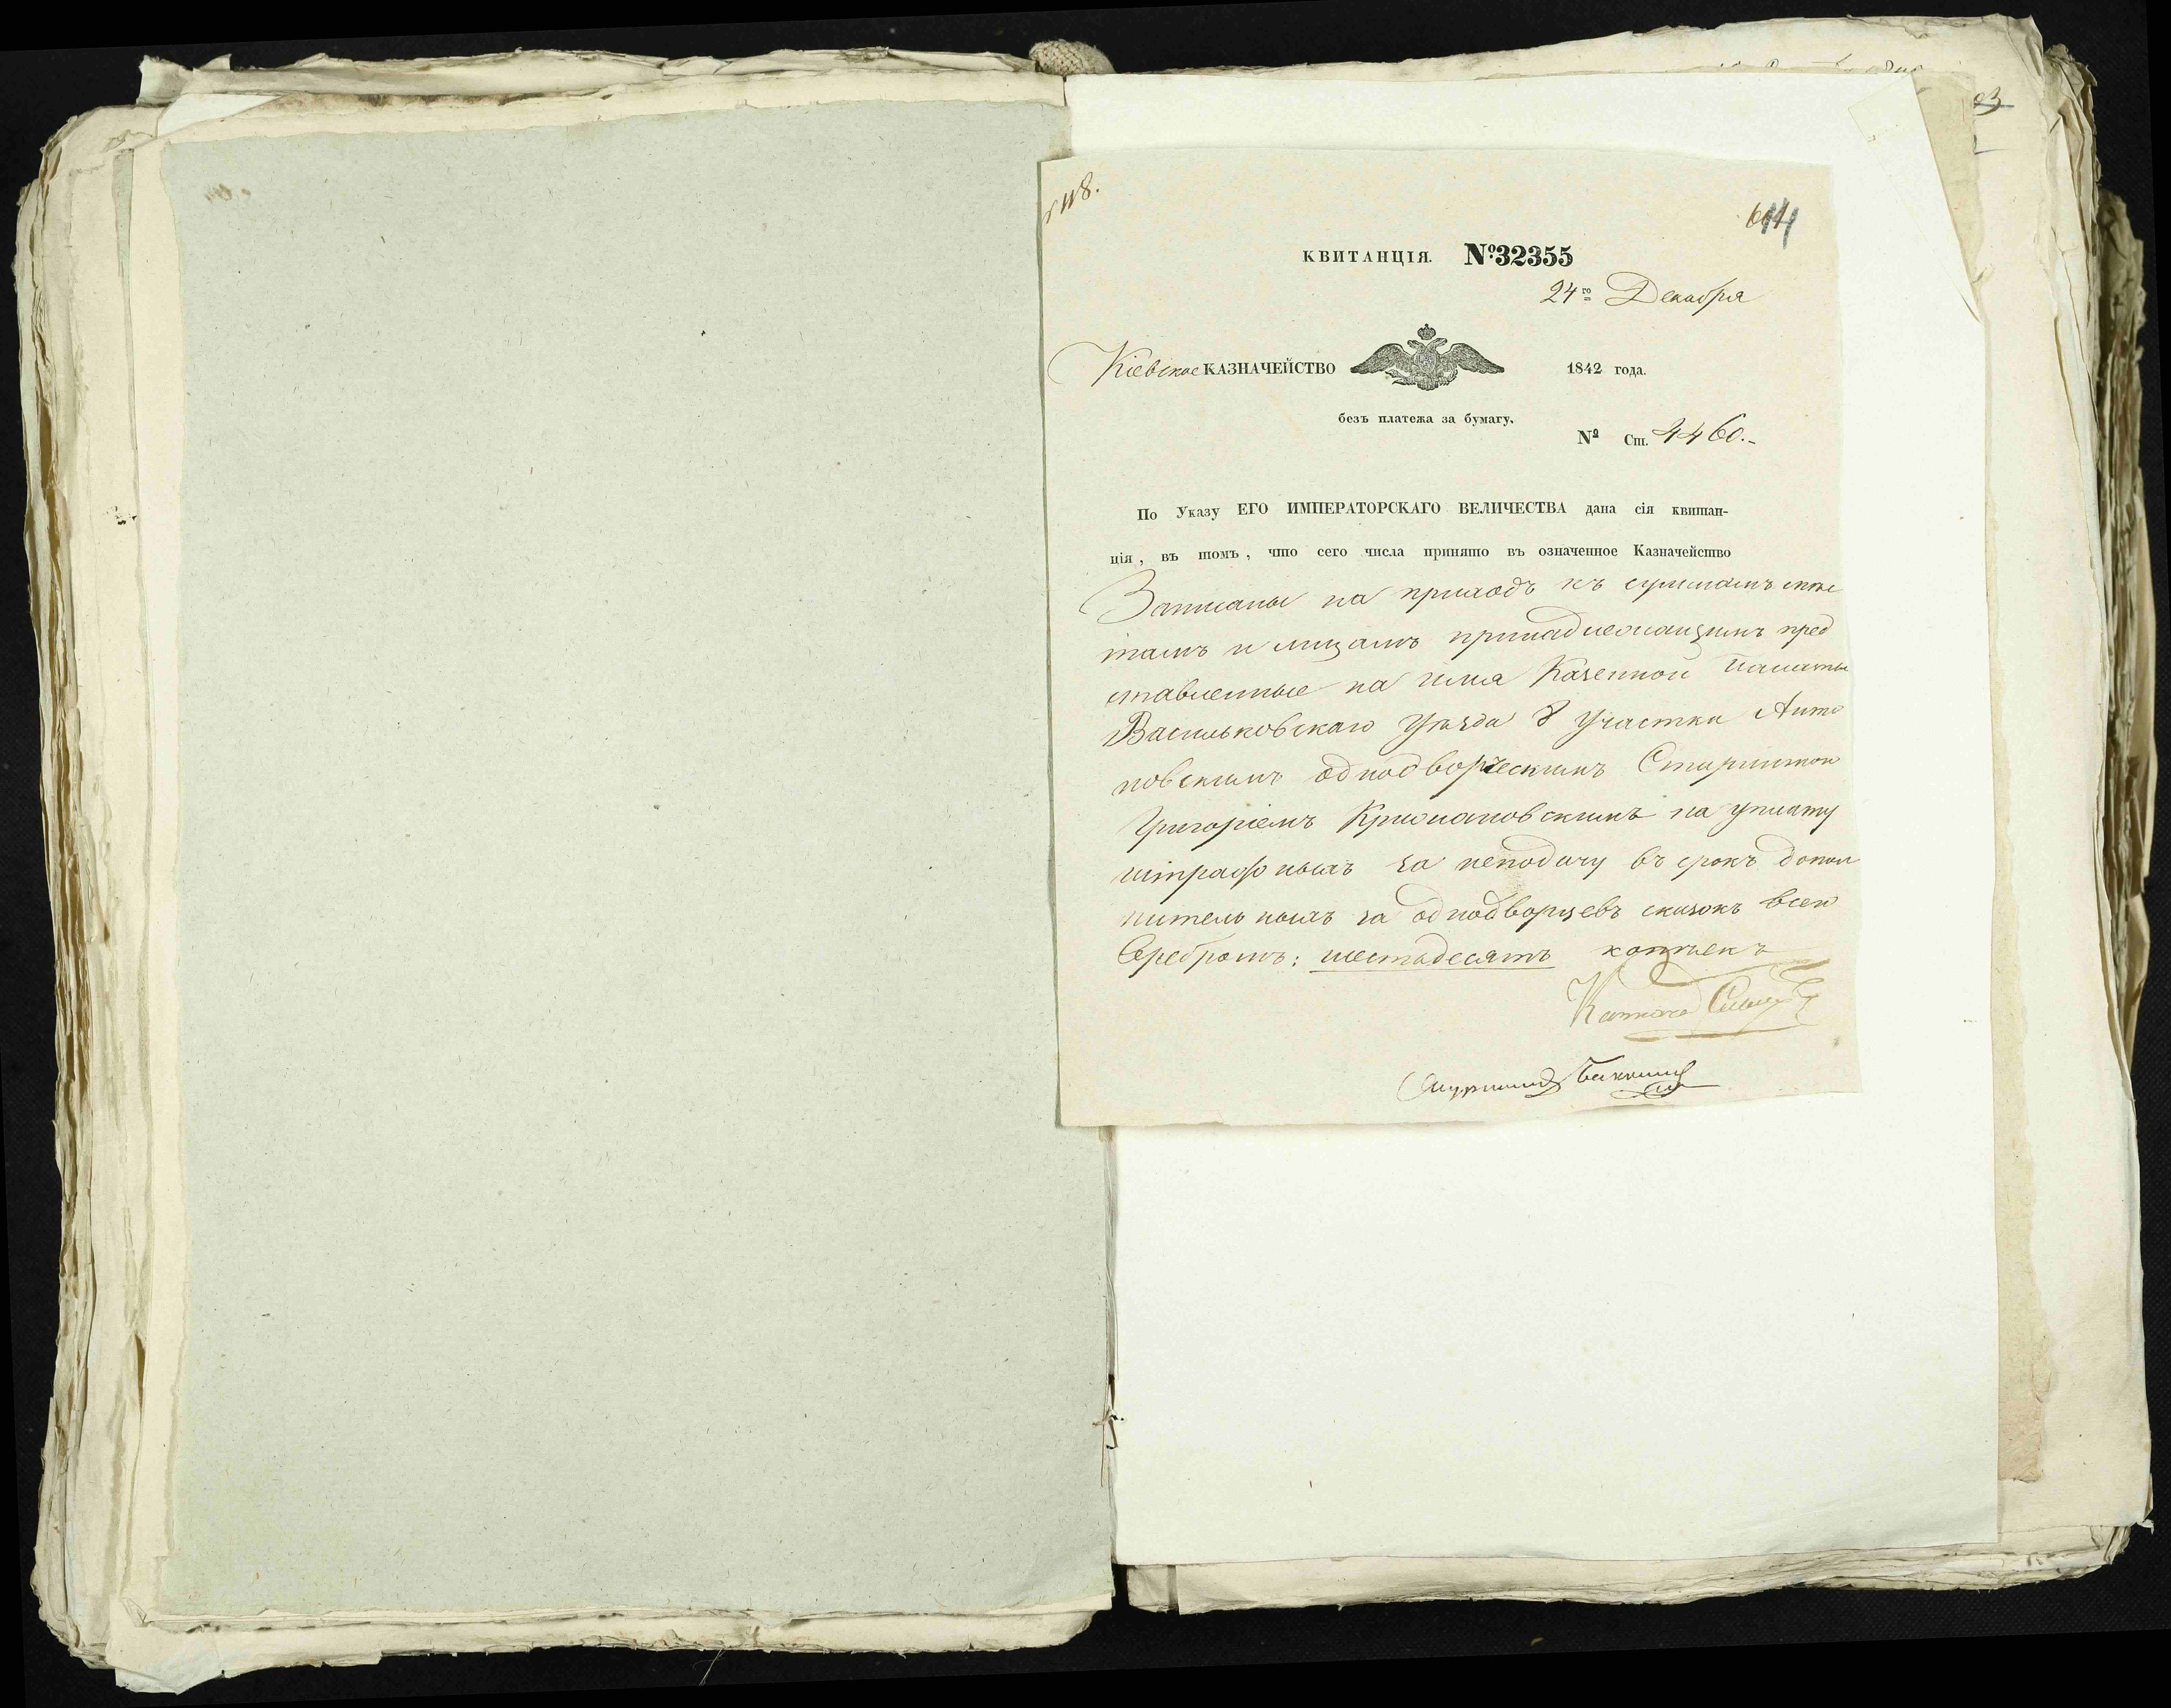 КВИТАНЦІЯ. №32355
24го Декабря
Кіевское КАЗНАЧЕЙСТВО 1842 года.
безъ платежа за бумагу.
№ Ст. 4460.-
По Указу ЕГО ИМПЕРАТОРСКАГО ВЕЛИЧЕСТВА дана сія квитан-
ція, въ томъ, что сего числа принято въ означенное Казначейство
Записаны на приходъ къ суммамъ мѣс
тамъ и лицамъ принадлежащимъ пред
ставленные на имя Казенной Палаты
Васильковскаго Уѣзда 8 Участка Анто
новскимъ однодворческимъ Старшиною
Григоріемъ Крижановскимъ на уплату
штрафныхъ за неподачу въ срокъ допол
нительныхъ за однодворцевъ сказокъ всего
Серебромъ: шестьдесятъ копѣекъ